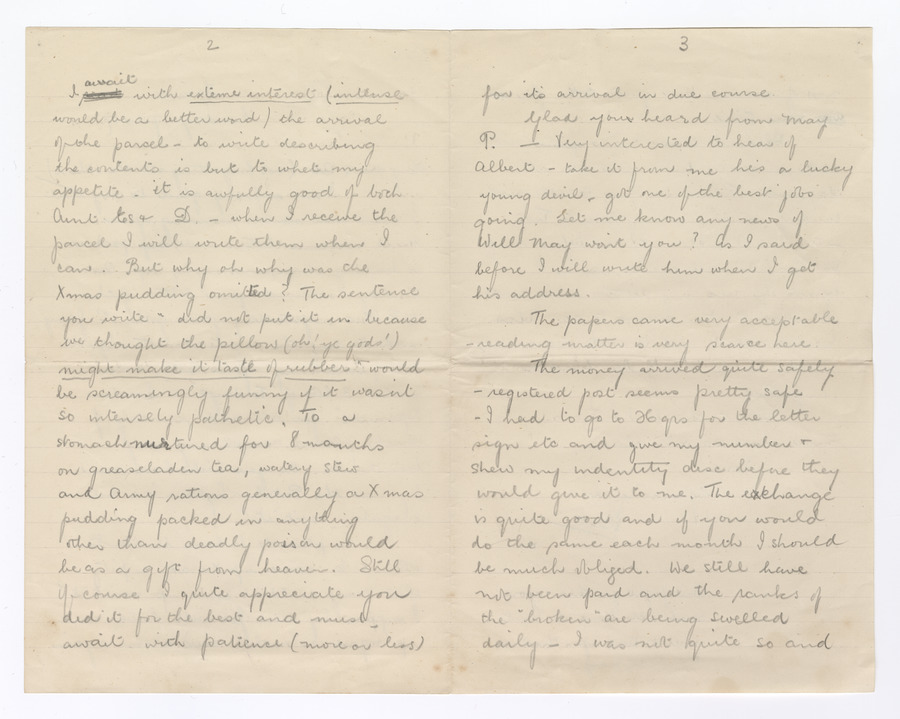 2
I await with exteme interest (intense
would be a better word) the arrival
of the parcel - to write describing
the contents is but to whet my
appetite - it is awfully good of both
Aunt Es & D. - when I receive the
parcel I will write them when I
can. But why oh why was the
Xmas pudding omitted? The sentence
you write "did not put it in because
we thought the pillow (oh! ye gods!)
might make it taste of rubber" would
be screamingly funny if it wasn't
so intensely pathetic. To a
stomach nurtured for 8 months
on greaseladen tea, watery stew
and Army rations generally a Xmas
pudding packed in anything
other than deadly poison would
be as a gift from heaven. Still
of course I quite appreciate you
did it for the best and must
await with patience (more or less)
3
for its arrival in due course.
Glad you heard from May
P. - I Very interested to hear of
Albert - take it from me he's a lucky
young devil - got one of the best jobs
going. Let me know any news of
Will May won't you? As I said
before I will write him when I get
his address.
The papers came very acceptable
- reading matter is very scarce here.
The money arrived quite safely
- registered post seems pretty safe
- I had to go to H qrs for the letter
sign etc and give my number &
shew my indentity disc before they
would give it to me. The exchange
is quite good and if you would
do the same each month I should
be much obliged. We still have
not been paid and the ranks of
the "broken" are being swelled
daily - I was not quite so and